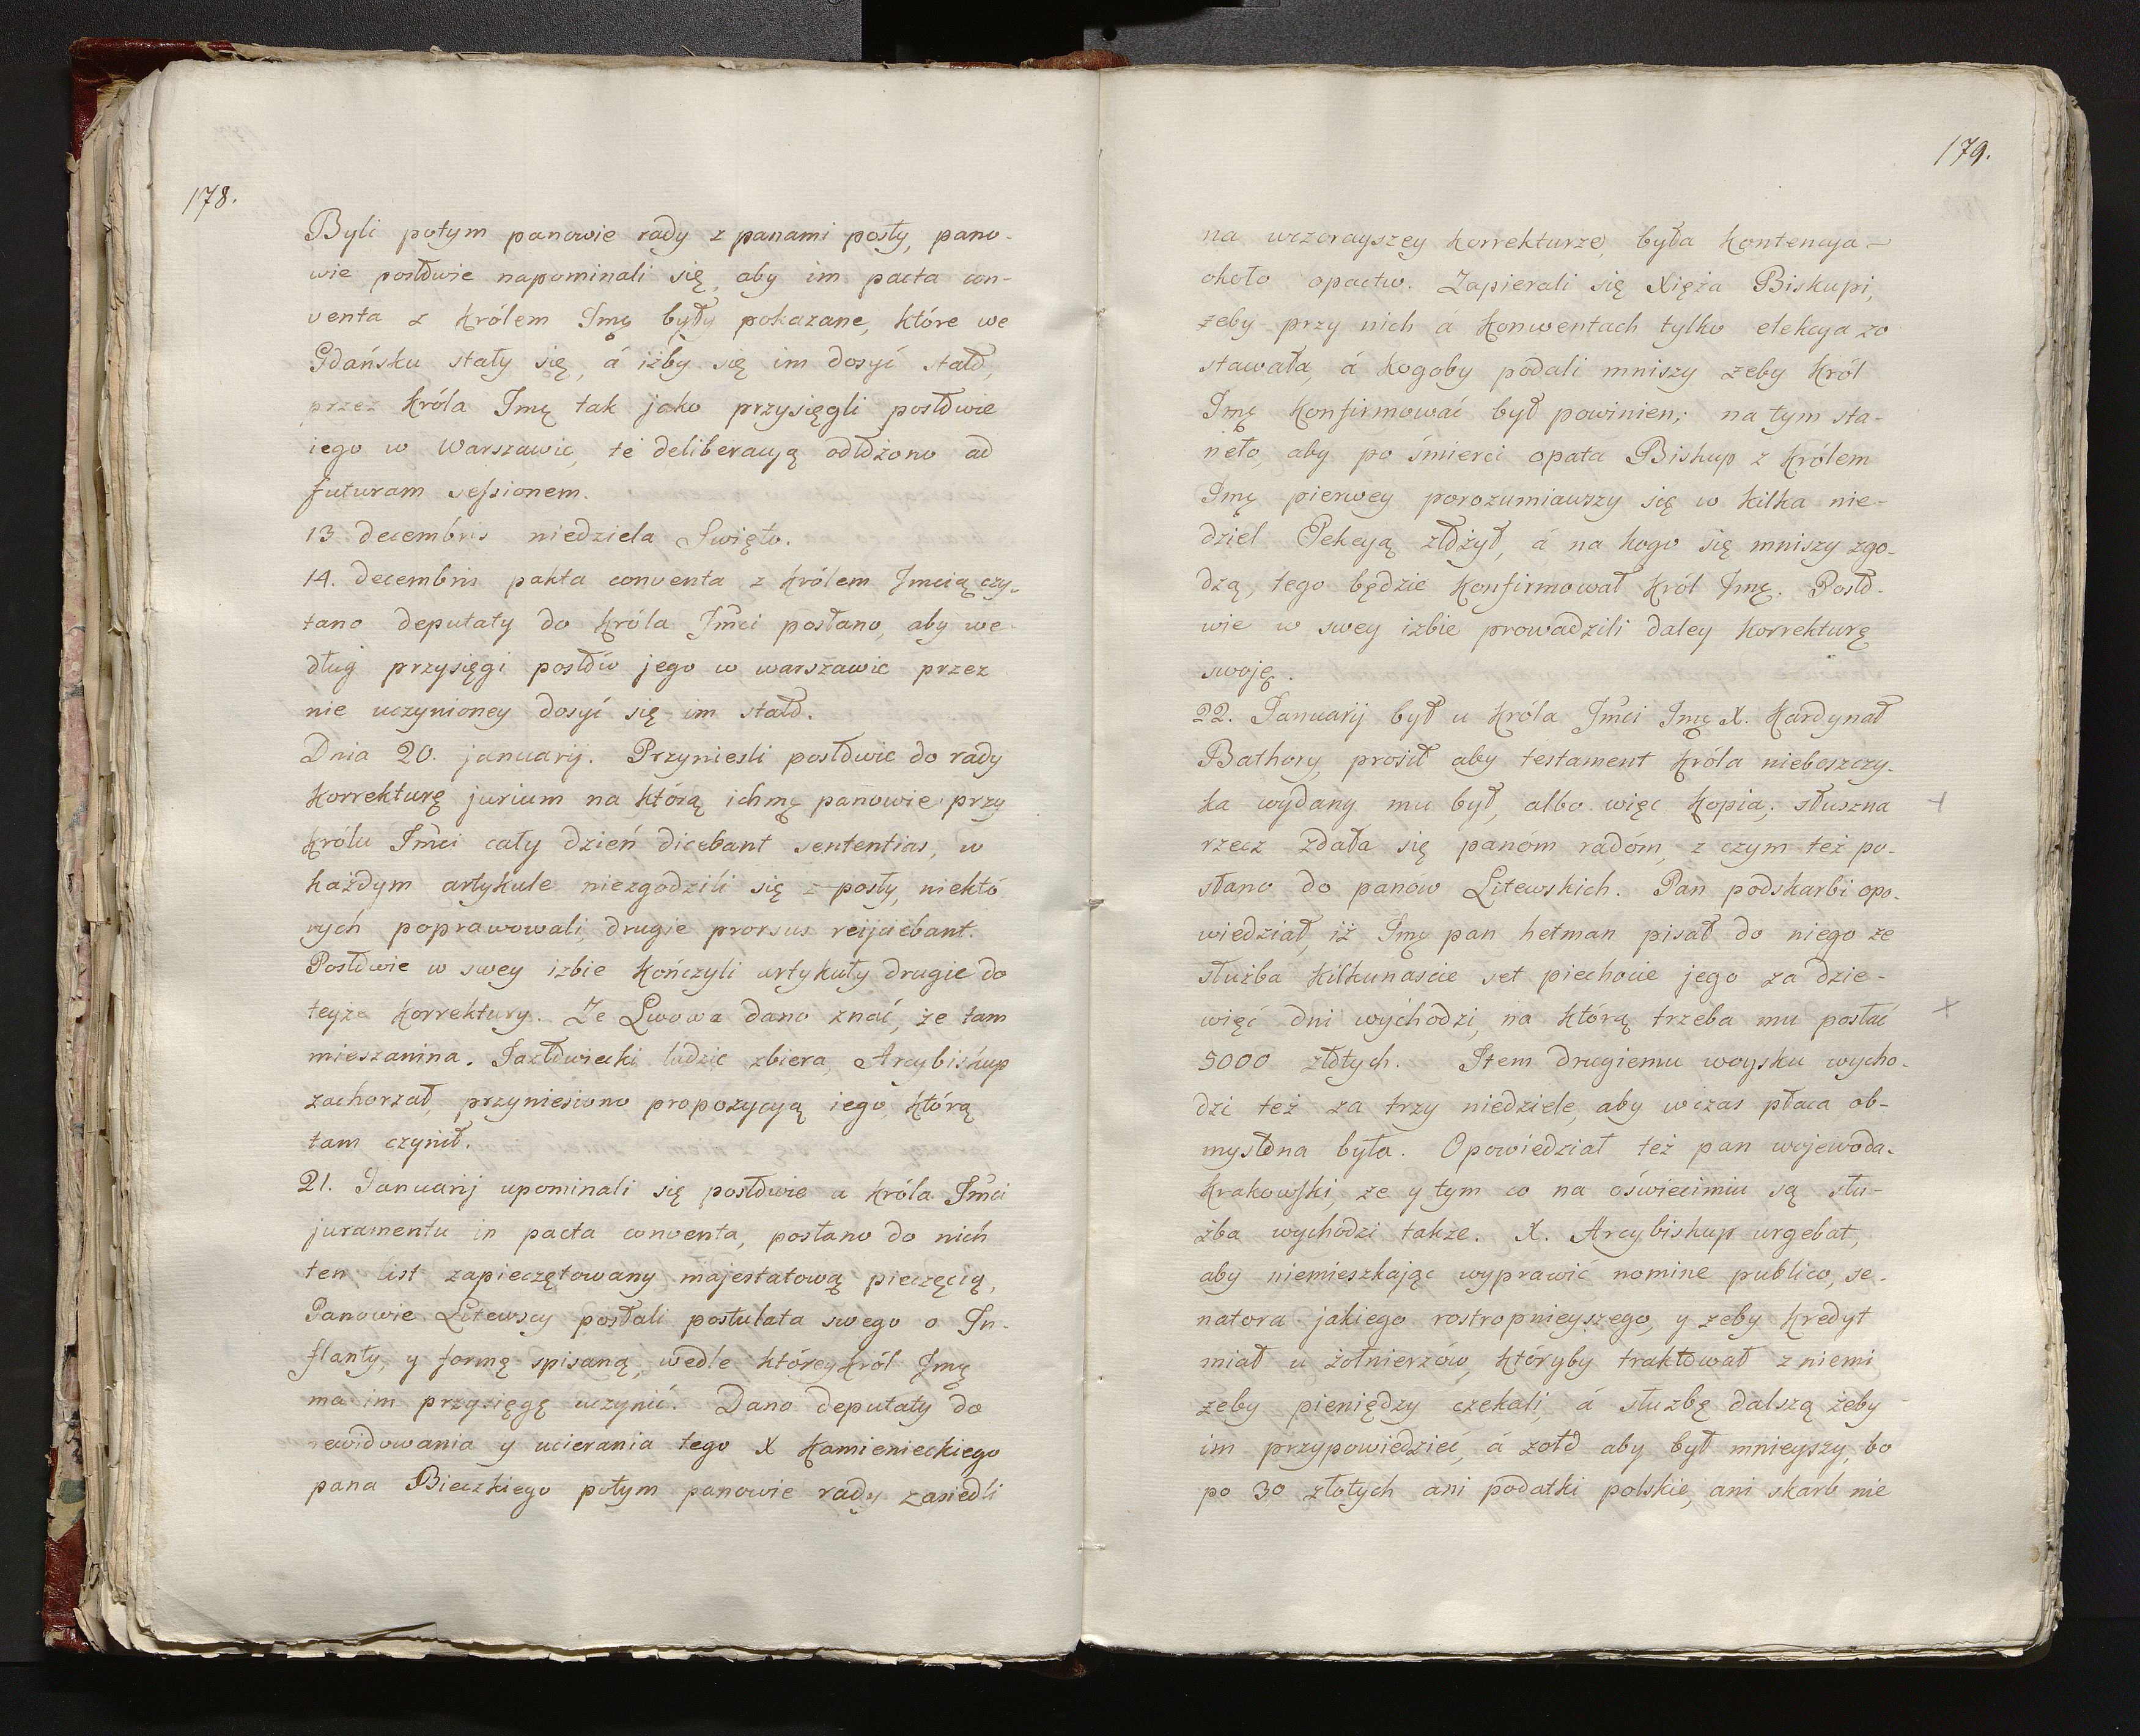 178.
Byli potym panowie rady z panami posły, pano-
wie posłowie napominali się, aby im pacta con-
venta z Królem Jmę były pokazane, które we
Gdańsku stały się, á iżby się im dosyć stało,
przez Króla Jmę tak jako przysięgli posłowie
iego w Warszawie, té deliberacyą odłożono ad
futuram sessionem.
13 decembris niedziela Swięto.
14. decembris pakta conventa z Królem Jmcią czy-
tano deputaty do Króla Jmci posłano, aby we-
dług przysięgi posłów jego w warszawie przez
nie uczynioney dosyć się im stało.
Dnia 20. januarij. Przyniesli posłowie do rady
Korrekturę jurium na którą ichmę panowie przy
królu Jmci cały dzień dicebant sententias, w
każdym artykule niezgodzili się z posły, niektó
rych poprawowali, drugie prorsus reijciebant.
Posłowie w swey izbie kończyli artykuły drugie do
teyże korrektury. Ze Lwowa dano znać, że tam
mieszanina. Jazłowiecki ludzie zbiera, Arcybiskup
zachorzał, przyniesiono propozycyą iego, którą
tam czynił.
21. Januarij upominali się posłowie u Króla Jmci
juramentu in pacta conventa, posłano do nich
ten list zapieczętowany majestatową pieczęcią,
Panowie Litewscy posłali postulata swego o In-
flanty, y formę spisaną, wedle którey Król Jmę
ma im przysięgę uczynić. Dano deputaty do
rewidowania y ucierania tego X Kamienieckiego
pana Bieczkiego potym panowie rady zasiedli
179.
na wczorayszey korrekturze, była kontencya
około opactw. Zapierali się Xięża Biskupi,
żeby przy nich á konwentach tylko elekcya zo
stawała, á kogoby podali mniszy żeby Król
Jmę konfirmować był powinien; na tym sta-
neło, aby po śmierci opata Biskup z Królem
Jmę pierwey porozumiawszy się w kilka nie-
dziel Elekcyą złożył, á na kogo się mniszy zgo-
dzą, tego będzie konfirmował Król Jmę. Posło-
wie w swey izbie prowadzili daley korrekturę
swoję.
22. Januarij był u Króla Jmci Jmę X. Kardynał
Bathory, prosił aby testament Króla nieboszczy-
ka wydany mu był, albo więc kopia; słuszna
rzecz zdała się panóm radóm, z czym też po-
słano do panów Litewskich. Pan podskarbi opo-
wiedział, iż Jmę pan hetman pisał do niego ze
służba kilkunascie set piechocie jego za dzie-
więć dni wychodzi, na którą trzeba mu posłać
5000 złotych. Item drugiemu woysku wycho-
dzi też za trzy niedziele, aby wczas płaca ob-
myslona była. Opowiedział też pan wojewoda
Krakowski, że y tym co na oświecimiu są słu-
żba wychodzi także. X. Arcybiskup urgebat,
aby niemieszkając wyprawić nomine publico, se-
natora jakiego rostropnieyszego, y żeby kredyt
miał u żołnierzów, któryby traktował z niemi
żeby pieniędzy czekali, á służbę dalszą żeby
im przypowiedzieć, á żołd aby był mnieyszy, bo
po 30 złotych ani podatki polskie, ani skarb nie